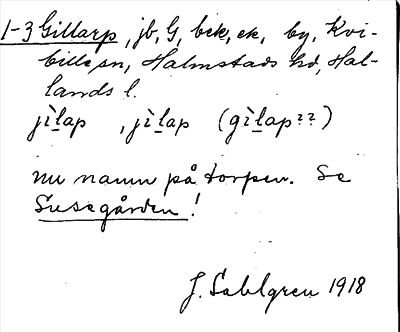 1-3 Gillarp, jb, G, bek, ek, by, Kvi-
bille sn, Halmstads hd, Hal-
lands l.
jìlap, jìlap (gìlap??)
nu namn på torpen. Se
Susegården!
J. Sahlgren 1918